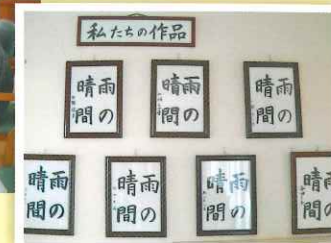 私たちの作品
雨の
晴間
雨の
晴間
雨の
晴間
雨の
晴間
雨の
晴間
雨の
晴間
雨の
晴間